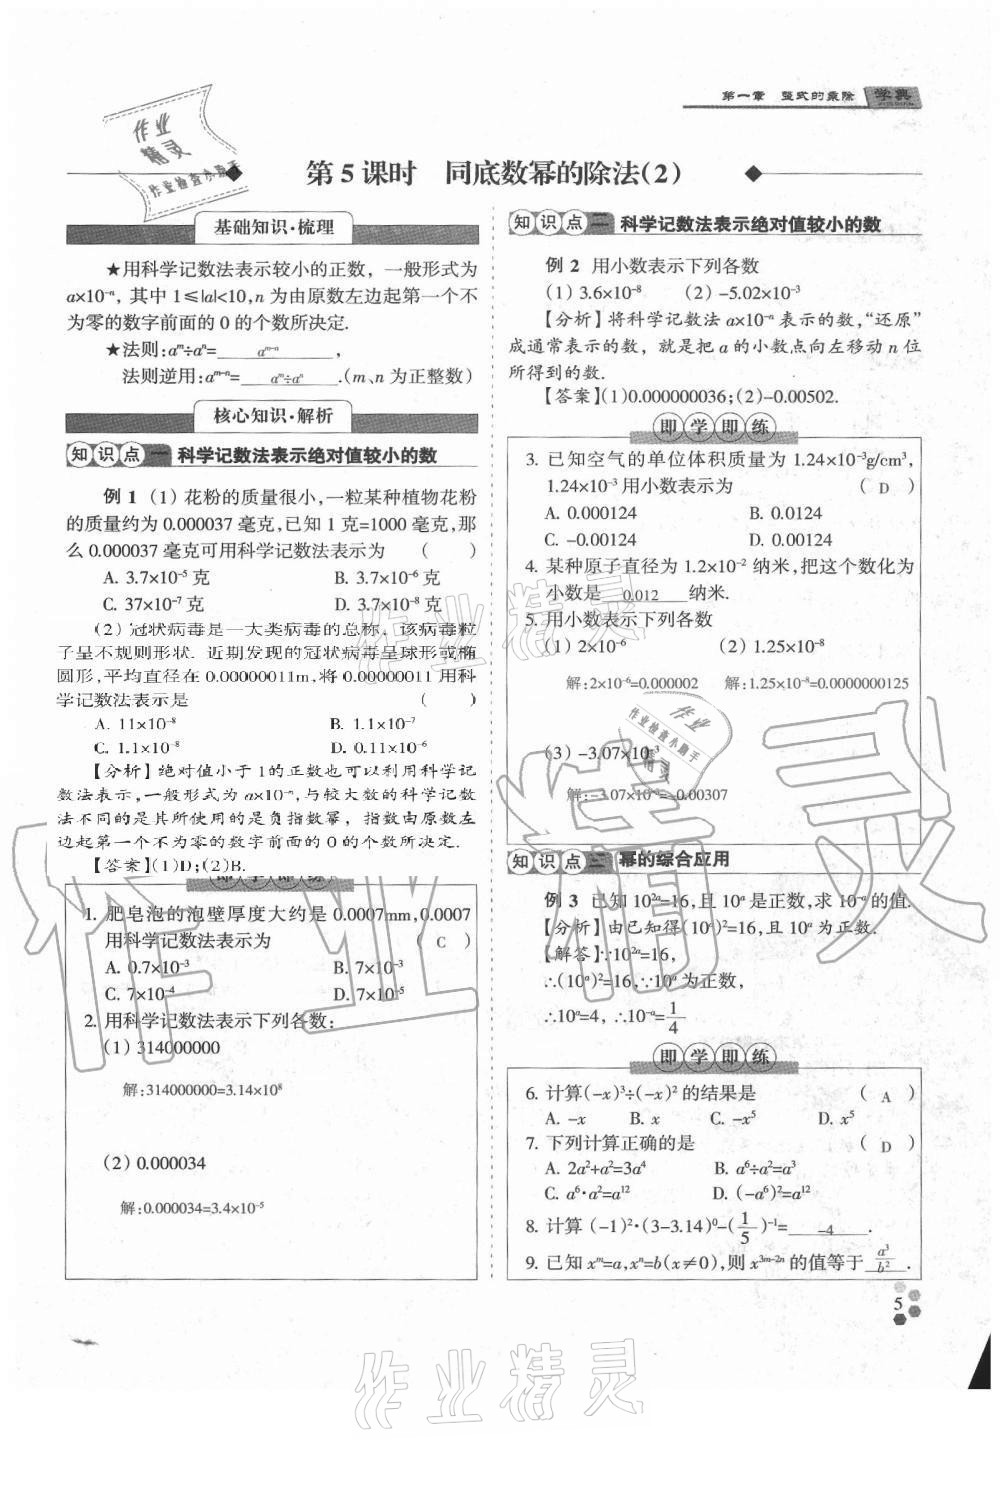 第一章 整式的乘除 学典
第5课时 同底数幂的除法(2)
基础知识·梳理
★用科学记数法表示较小的正数，一般形式为
a×10⁻ⁿ，其中1≤|a|<10,n为由原数左边起第一个不
为零的数字前面的0的个数所决定.
★法则:aᵐ÷aⁿ= aᵐ⁻ⁿ ，
法则逆用:aᵐ⁻ⁿ= aᵐ÷aⁿ .(m、n为正整数)
核心知识·解析
知识点一 科学记数法表示绝对值较小的数
例1 (1)花粉的质量很小,一粒某种植物花粉
的质量约为0.000037毫克,已知1克=1000毫克,那
么0.000037毫克可用科学记数法表示为 ( )
A. 3.7×10⁻⁵克 B. 3.7×10⁻⁶克
C. 37×10⁻⁷克 D. 3.7×10⁻⁸克
(2)冠状病毒是一大类病毒的总称，该病毒粒
子呈不规则形状. 近期发现的冠状病毒呈球形或椭
圆形,平均直径在0.00000011m,将0.00000011用科
学记数法表示是 ( )
A. 11×10⁻⁸ B. 1.1×10⁻⁷
C. 1.1×10⁻⁸ D. 0.11×10⁻⁶
【分析】绝对值小于1的正数也可以利用科学记
数法表示,一般形式为a×10⁻ⁿ,与较大数的科学记数
法不同的是其所使用的是负指数幂，指数由原数左
边起第一个不为零的数字前面的0的个数所决定.
【答案】(1)D;(2)B.
即学即练
1. 肥皂泡的泡壁厚度大约是0.0007mm,0.0007
用科学记数法表示为 ( C )
A. 0.7×10⁻³ B. 7×10⁻³
C. 7×10⁻⁴ D. 7×10⁻⁵
2. 用科学记数法表示下列各数:
(1) 314000000
解:314000000=3.14×10⁸
(2) 0.000034
解:0.000034=3.4×10⁻⁵
知识点二 科学记数法表示绝对值较小的数
例2 用小数表示下列各数
(1) 3.6×10⁻⁸ (2) -5.02×10⁻³
【分析】将科学记数法a×10⁻ⁿ表示的数,“还原”
成通常表示的数，就是把a的小数点向左移动n位
所得到的数.
【答案】(1)0.000000036;(2)-0.00502.
即学即练
3. 已知空气的单位体积质量为1.24×10⁻³g/cm³,
1.24×10⁻³用小数表示为 ( D )
A. 0.000124 B. 0.0124
C. -0.00124 D. 0.00124
4. 某种原子直径为1.2×10⁻²纳米,把这个数化为
小数是 0.012 纳米.
5. 用小数表示下列各数
(1) 2×10⁻⁶ (2) 1.25×10⁻⁸
解:2×10⁻⁶=0.000002 解:1.25×10⁻⁸=0.0000000125
(3) -3.07×10⁻³
解:-3.07×10⁻³=-0.00307
知识点三 幂的综合应用
例3 已知10²ᵃ=16,且10ᵃ是正数,求10⁻ᵃ的值.
【分析】由已知得(10ᵃ)²=16,且10ᵃ为正数.
【解答】∵10²ᵃ=16,
∴(10ᵃ)²=16,∵10ᵃ为正数,
∴10ᵃ=4, ∴10⁻ᵃ=1/4
即学即练
6. 计算(-x)³÷(-x)²的结果是 ( A )
A. -x B. x C. -x⁵ D. x⁵
7. 下列计算正确的是 ( D )
A. 2a²+a²=3a⁴ B. a⁶÷a²=a³
C. a⁶·a²=a¹² D. (-a⁶)²=a¹²
8. 计算 (-1)²·(3-3.14)⁰-(1/5)⁻¹= -4 .
9. 已知xᵐ=a,xⁿ=b(x≠0),则x³ᵐ⁻²ⁿ的值等于 a³/b² .
5
作业精灵
作业检查小助手
作业精灵
作业精灵
作业精灵
作业检查小助手
作业精灵